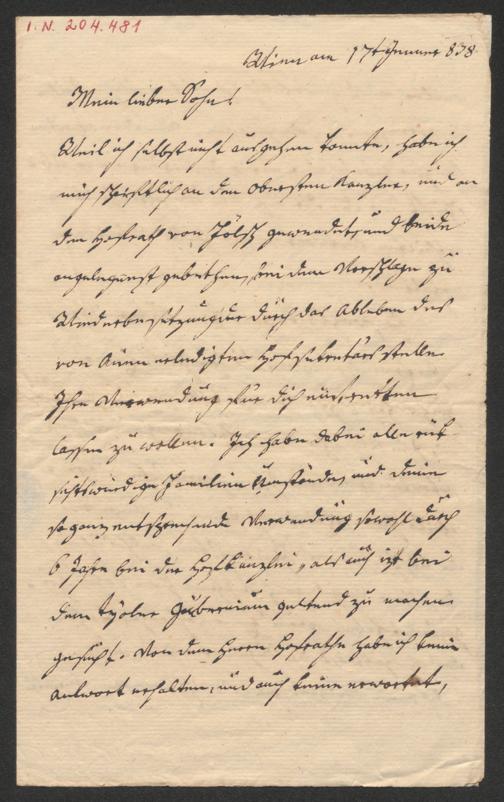 I. N. 204.481
Wien am 17t Jenner 838
Mein lieber Sohn!
Weil ich selbst nicht ausgehen konnte, habe ich
mich schriftlich an den Obersten Kanzler, und an
den Hofrath von gewendet, und beide
angelegenst gebethen, bei dem Vorschlage zu
Wiederbesetzung der durch das Ableben des
von erledigten Hofsekretärs Stelle
Ihre Verwendung für dich eintretten
lassen zu wollen. Ich habe dabei alle rük
sichtswürdige Familien Umstände, und deine
so ganz entsprechende Verwendung sowohl durch
6 Jahre bei der Hofkanzlei, als auch izt bei
dem tyoler Gubernium geltend zu machen
gesucht. Von dem Herrn Hofrathe habe ich keine
Antwort erhalten, und auch keine erwartet,